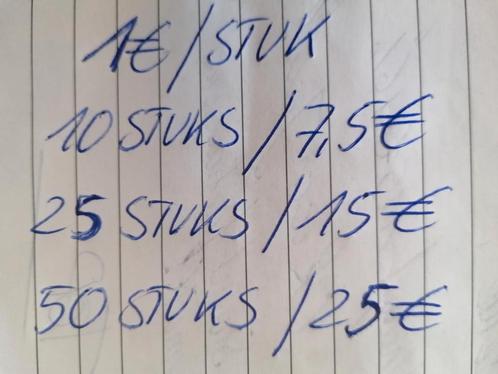 1€/STUK
10 STUKS/7,5€
25 STUKS/15€
50 STUKS/25€